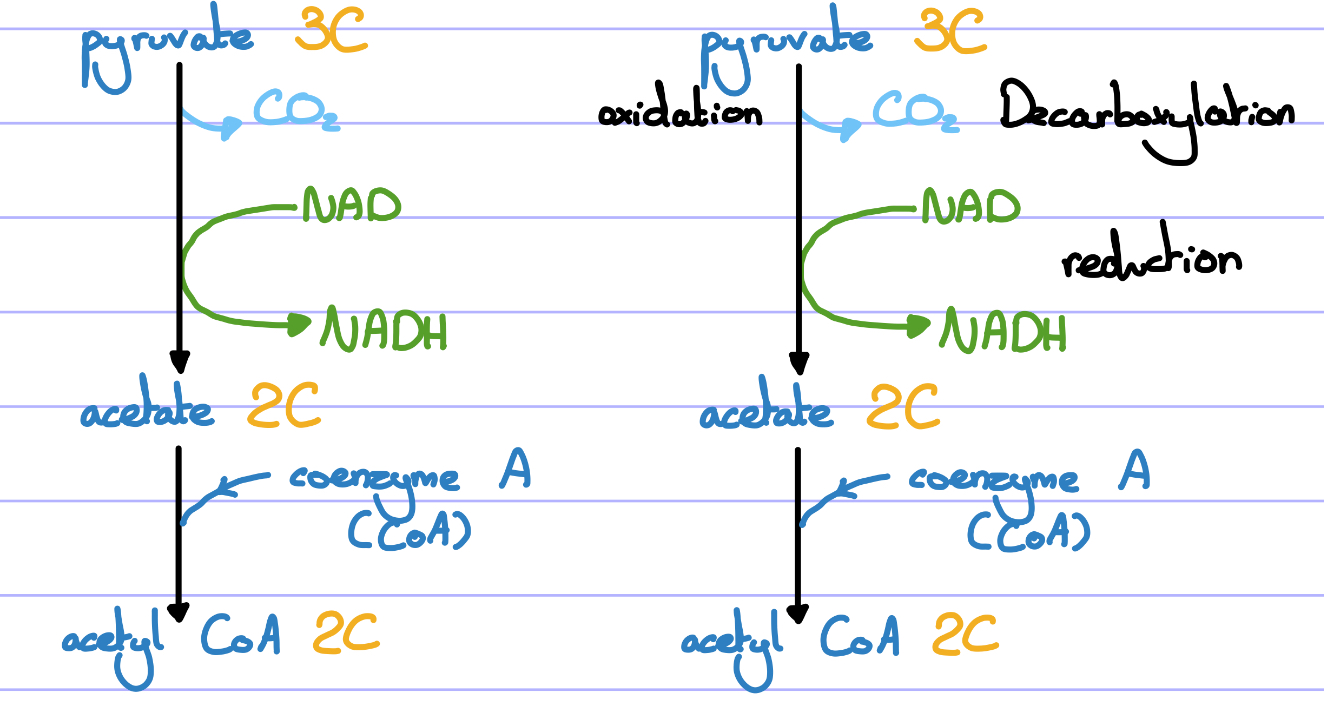 pyruvate 3C
CO₂
NAD
NADH
acetate 2C
coenzyme A
(CoA)
acetyl CoA 2C
pyruvate 3C
oxidation
CO₂ Decarboxylation
NAD
reduction
NADH
acetate 2C
coenzyme A
(CoA)
acetyl CoA 2C